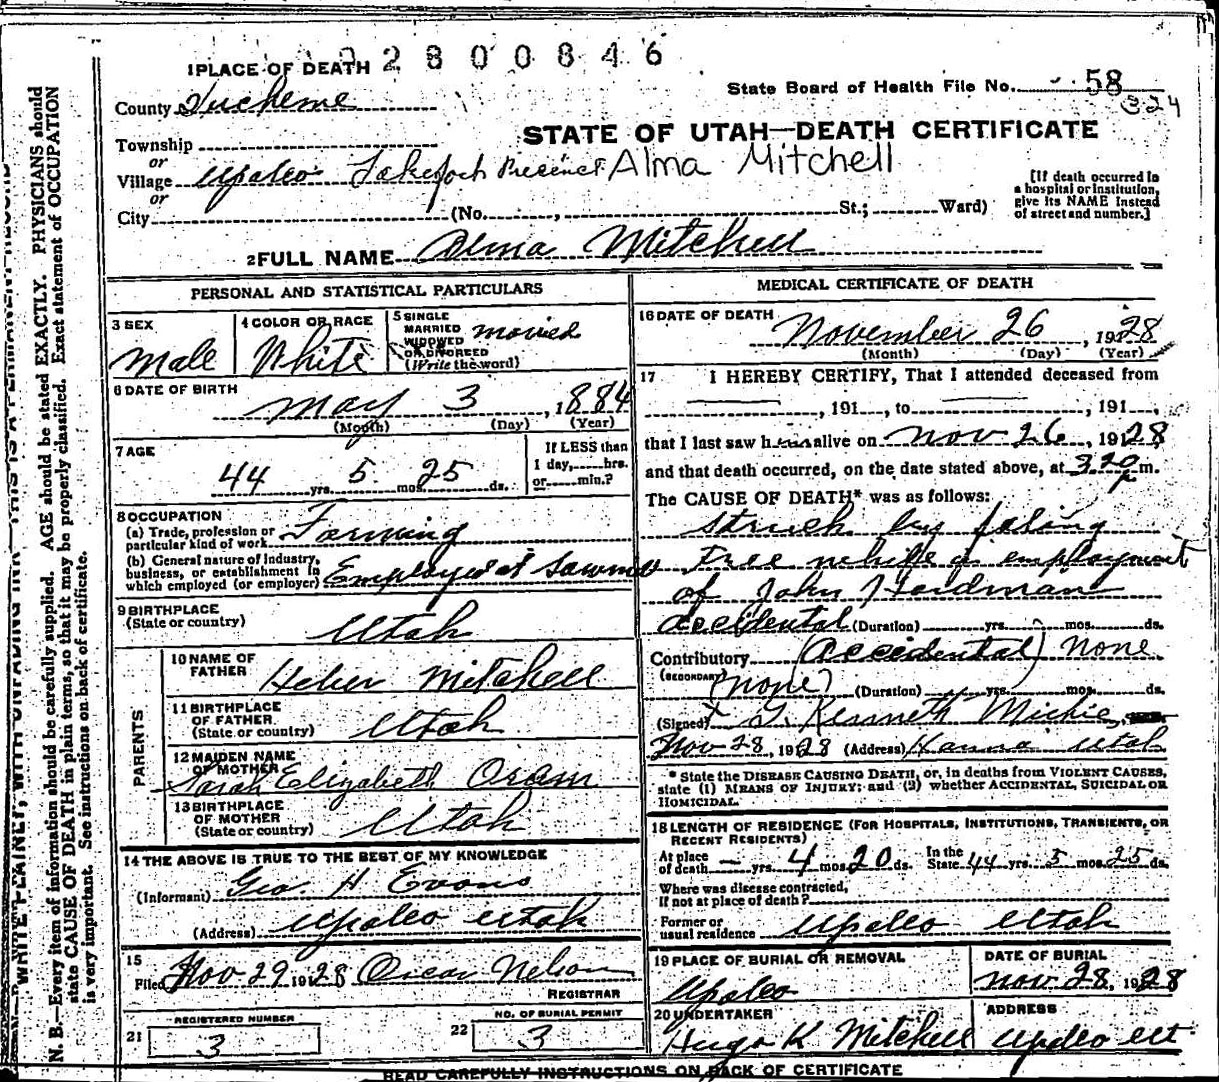 2800846
1 PLACE OF DEATH
State Board of Health File No. 58
324
County Duchesne
STATE OF UTAH—DEATH CERTIFICATE
Township
or
Village Upalco Lakefork Precinct Alma Mitchell
or
City (No. , St.; Ward)
[If death occurred in
a hospital or institution,
give its NAME instead
of street and number.]
2 FULL NAME Alma Mitchell
PERSONAL AND STATISTICAL PARTICULARS
3 SEX
Male
4 COLOR OR RACE
White
5 SINGLE
MARRIED
WIDOWED
OR DIVORCED
(Write the word)
Married
6 DATE OF BIRTH
May 3, 1884
(Month) (Day) (Year)
7 AGE
44 yrs. 5 mos. 25 ds.
If LESS than
1 day, hrs.
or min.?
8 OCCUPATION
(a) Trade, profession or
particular kind of work Farming
(b) General nature of industry,
business, or establishment in
which employed (or employer) Employed at Sawmill
9 BIRTHPLACE
(State or country) Utah
PARENTS
10 NAME OF
FATHER Heber Mitchell
11 BIRTHPLACE
OF FATHER
(State or country) Utah
12 MAIDEN NAME
OF MOTHER
Sarah Elizabeth Oram
13 BIRTHPLACE
OF MOTHER
(State or country) Utah
14 THE ABOVE IS TRUE TO THE BEST OF MY KNOWLEDGE
(Informant) Geo H Evans
(Address) Upalco Utah
15
Filed Nov 29 1928 Oscar Nelson
REGISTRAR
21 REGISTERED NUMBER
3
22 NO. OF BURIAL PERMIT
3
MEDICAL CERTIFICATE OF DEATH
16 DATE OF DEATH
November 26, 1928
(Month) (Day) (Year)
17 I HEREBY CERTIFY, That I attended deceased from
, 191 , to , 191 ,
that I last saw h alive on Nov 26, 1928
and that death occurred, on the date stated above, at 3 20 P m.
The CAUSE OF DEATH* was as follows:
Struck by falling
tree while in employment
of John Hardman
Accidental (Duration) yrs. mos. ds.
Contributory (Accidental) None
(SECONDARY) (None) (Duration) yrs. mos. ds.
(Signed) Kenneth Michie
Nov 28, 1928 (Address) Hanna Utah
* State the DISEASE CAUSING DEATH, or, in deaths from VIOLENT CAUSES,
state (1) MEANS OF INJURY; and (2) whether ACCIDENTAL, SUICIDAL OR
HOMICIDAL.
18 LENGTH OF RESIDENCE (FOR HOSPITALS, INSTITUTIONS, TRANSIENTS, OR
RECENT RESIDENTS)
At place
of death — yrs. 4 mos. 20 ds. In the
State 44 yrs. 5 mos. 25 ds.
Where was disease contracted,
if not at place of death?
Former or
usual residence Upalco Utah
19 PLACE OF BURIAL OR REMOVAL
Upalco
DATE OF BURIAL
Nov 28, 1928
20 UNDERTAKER
Hugo K Mitchell
ADDRESS
Upalco Ut
READ CAREFULLY INSTRUCTIONS ON BACK OF CERTIFICATE
WRITE PLAINLY, WITH UNFADING INK—THIS IS A PERMANENT RECORD
N. B.—Every item of information should be carefully supplied. AGE should be stated EXACTLY. PHYSICIANS should
state CAUSE OF DEATH in plain terms, so that it may be properly classified. Exact statement of OCCUPATION
is very important. See instructions on back of certificate.